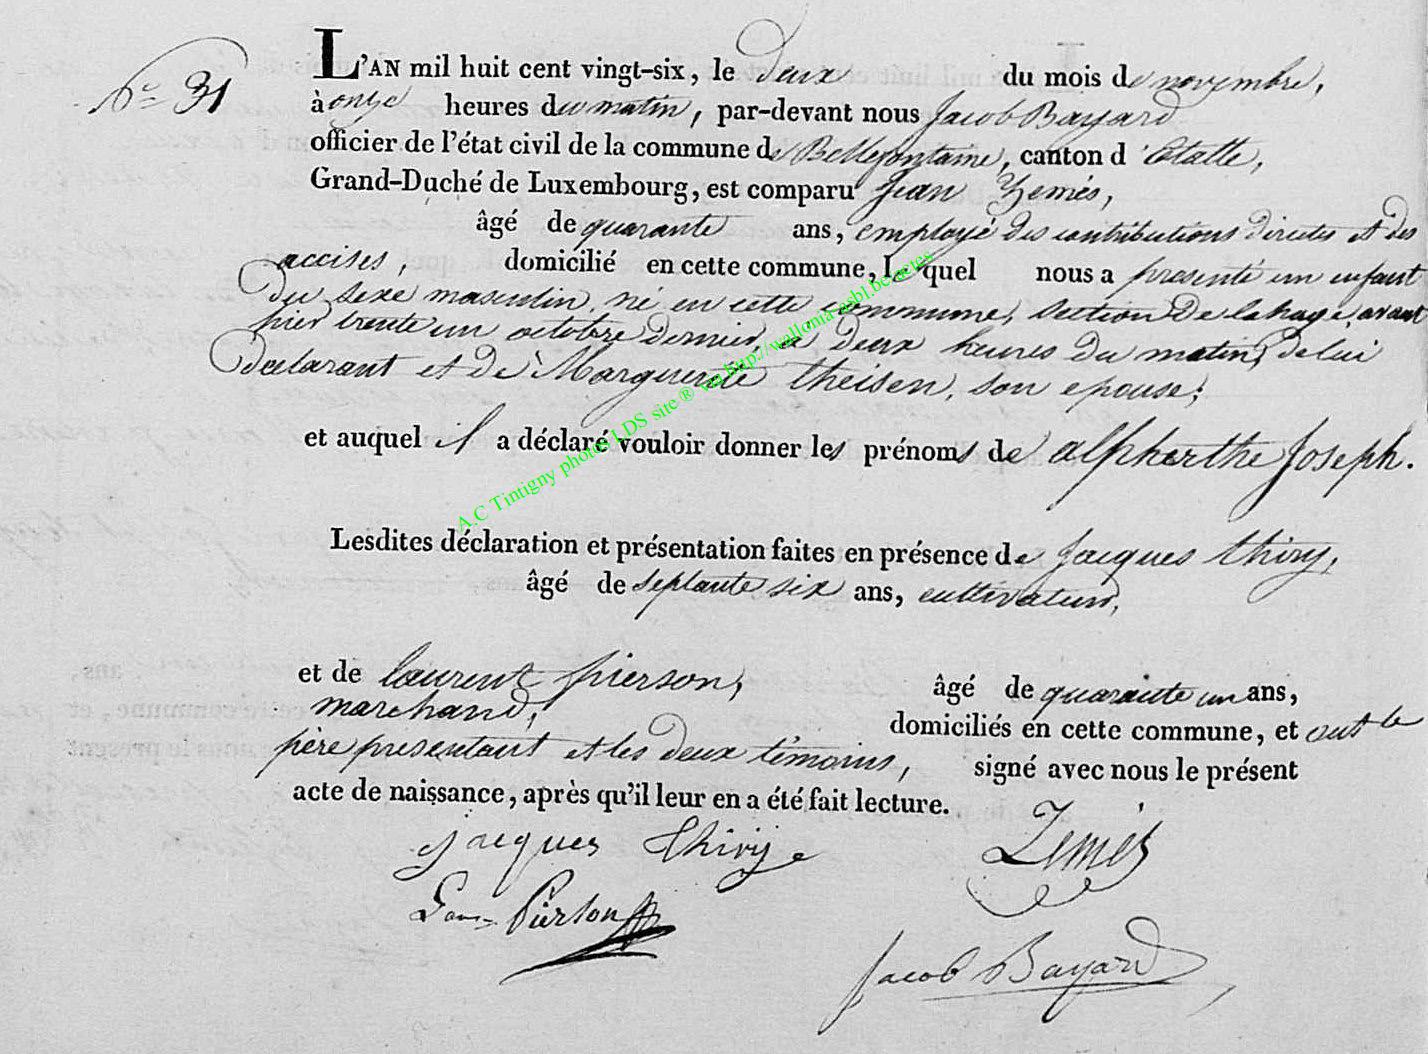 N° 31
L'AN mil huit cent vingt-six, le deux du mois de novembre,
à onze heures du matin, par-devant nous Jacob Bayard
officier de l'état civil de la commune de Bellefontaine, canton d'Etalle,
Grand-Duché de Luxembourg, est comparu Jean Zemés,
âgé de quarante ans, employé des contributions directes et des
accises, domicilié en cette commune, Lequel nous a presenté un enfant
du sexe masculin, né en cette commune, section de lahage, avant
hier trente un octobre dernier, à deux heures du matin, de lui
declarant et de Marguerite theisen, son epouse;
et auquel il a déclaré vouloir donner les prénoms de alpherthe Joseph.
Lesdites déclaration et présentation faites en présence de Jacques thiry,
âgé de septante six ans, cultivateur,
et de laurent pierson, âgé de quarante un ans,
marchand, domiciliés en cette commune, et ont le
père presentant et les deux témoins, signé avec nous le présent
acte de naissance, après qu'il leur en a été fait lecture.
jacques thiry Zemés
Pierson
Jacob Bayard
A.C Tintigny photos LDS site ® via http://wallonia-asbl.be/actes